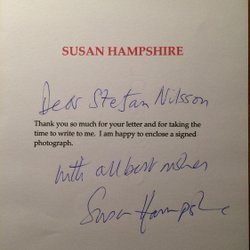 SUSAN HAMPSHIRE
Dear Stefan Nilsson
Thank you so much for your letter and for taking the
time to write to me. I am happy to enclose a signed
photograph.
with all best wishes
Susan Hampshire